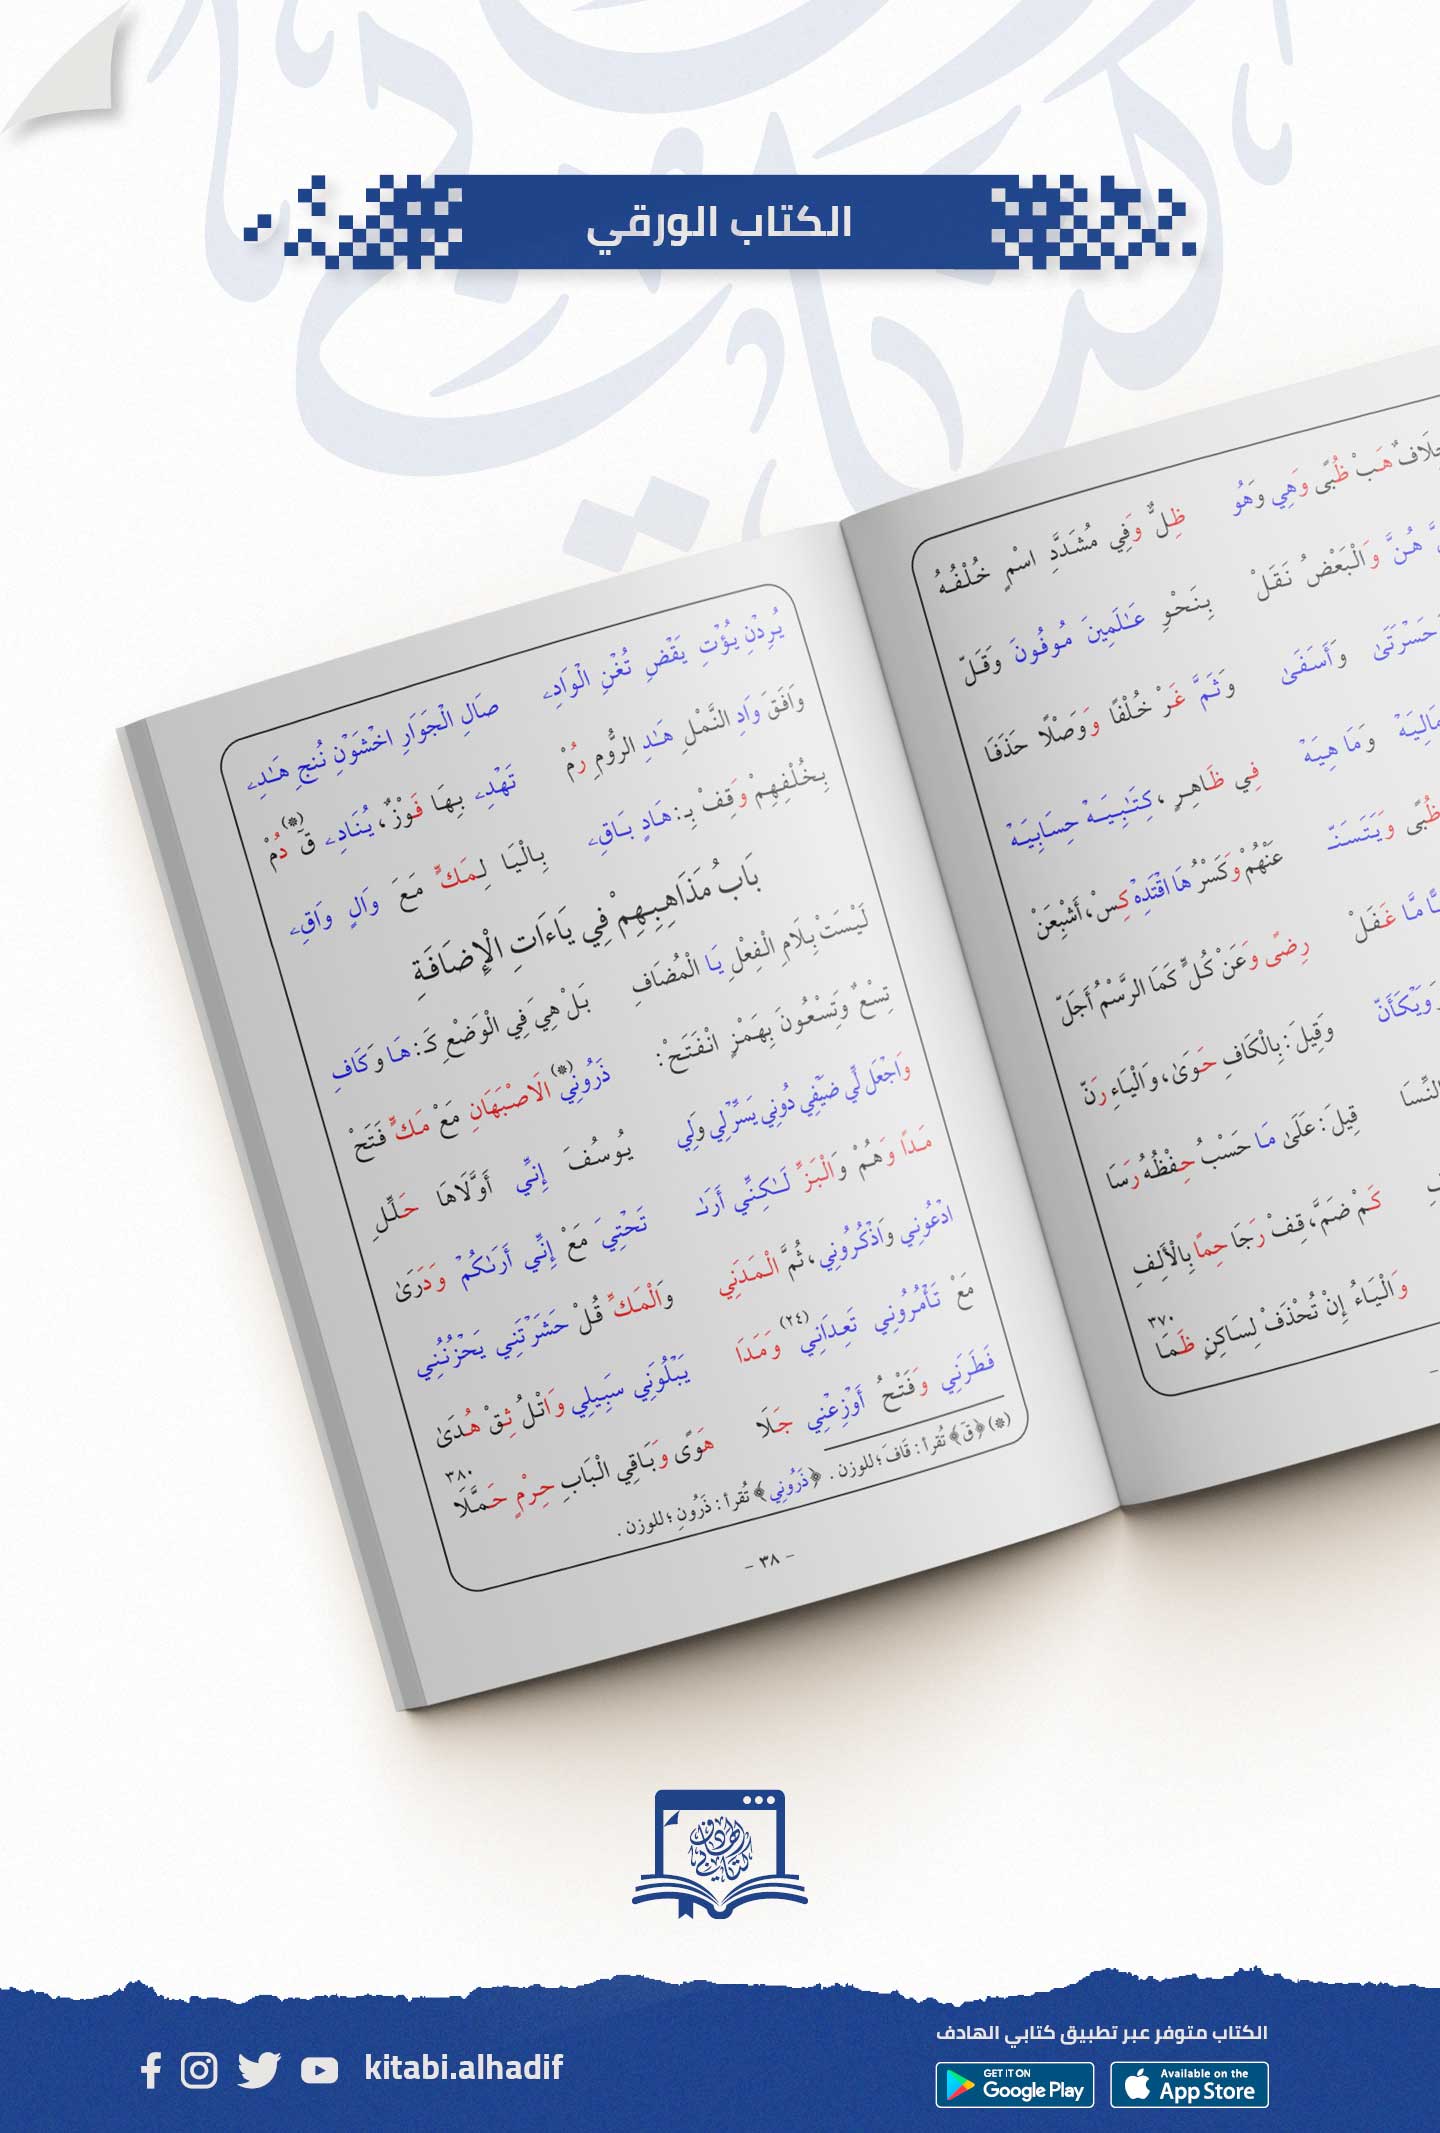 الكتاب الورقي
خِلَافٌ هَبْ ظُبًى وَهِي وَهُو ظِلٌّ وَفِي مُشَدَّدِ اسْمٍ خُلْفُهُ
هُنَّ وَالْبَعْضُ نَقَلْ بِنَحْوِ عَٰلَمِينَ مُوفُونَ وَقَلّ
حَسْرَتَىٰ وَأَسَفَىٰ وَثَمَّ غَرْ خُلْفًا وَوَصْلًا حَذَفَا
مَالِيَهْ وَمَا هِيَهْ فِي ظَاهِرٍ، كِتَٰبِيَهْ حِسَابِيَهْ
ظُبًى وَيَتَسَنَّـ عَنْهُمْ وَكَسْرُ هَا اقْتَدِهْ كِسْ، أَشْبِعَنْ
مَّا غَفَلْ رِضًى وَعَنْ كُلٍّ كَمَا الرَّسْمُ أَجَلّ
وَيْكَأَنّ وَقِيلَ: بِالْكَافِ حَوَىٰ، وَالْيَاءِ رَنّ
النِّسَا قِيلَ: عَلَىٰ مَا حَسْبُ حِفْظُهُ رَسَا
كَمْ ضَمَّ، قِفْ رَجَا حِمًا بِالْأَلِفِ
وَالْيَاءُ إِنْ تُحْذَفْ لِسَاكِنٍ ظَمَا ٣٧٠
يُرِدْنِ يُؤْتِ يَقْضِ تُغْنِ الْوَادِے صَالِ الْجَوَارِ اخْشَوْنِ نُنجِ هَٰدِے
وَافَقَ وَادِ النَّمْلِ هَٰدِ الرُّومِ رُمْ تَهْدِے بِهَا فَوْزٌ، يُنَادِے قٓ (*) دُمْ
بِخُلْفِهِمْ وَقِفْ بِـ: هَادٍ بَاقِے بِالْيَا لِمَكٍّ مَعَ وَالٍ وَاقِے
بَابُ مَذَاهِبِهِمْ فِي يَاءَاتِ الْإِضَافَةِ
لَيْسَتْ بِلَامِ الْفِعْلِ يَا الْمُضَافِ بَلْ هِيَ فِي الْوَضْعِ كَـ: هَا وَكَافِ
تِسْعٌ وَتِسْعُونَ بِهَمْزٍ انْفَتَحْ: ذَرُونِي (*) الَاصْبَهَانِ مَعْ مَكٍّ فَتَحْ
وَاجْعَل لِّي ضَيْفِي دُونِي يَسِّرْ لِي وَلِي يُوسُفَ إِنِّي أَوَّلَاهَا حَلِّلِ
مَدًا وَهُمْ وَالْبَزِّ لَٰكِنِّي أَرَىٰـ تَحْتِيَ مَعْ إِنِّي أَرَىٰكُمْ وَدَرَىٰ
ادْعُونِي وَاذْكُرُونِي، ثُمَّ الْمَدَنِي وَالْمَكِّ قُلْ حَشَرْتَنِي يَحْزُنُنِي
مَعْ تَأْمُرُونِي تَعِدَانِي (٢٤) وَمَدَا يَبْلُوَنِي سَبِيلِي وَاتْلُ ثِقْ هُدَىٰ
فَطَرَنِي وَفَتْحُ أَوْزِعْنِي جَلَا هَوًى وَبَاقِي الْبَابِ حِرْمٍ حَمَّلَا ٣٨٠
(*) ﴿قٓ﴾ تُقرأ: قَافَ؛ للوزن. ﴿ذَرُونِي﴾ تُقرأ: ذَرُونِ؛ للوزن.
- ٣٨ -
كتابي الهادف
الكتاب متوفر عبر تطبيق كتابي الهادف
kitabi.alhadif
GET IT ON
Google Play
Available on the
App Store